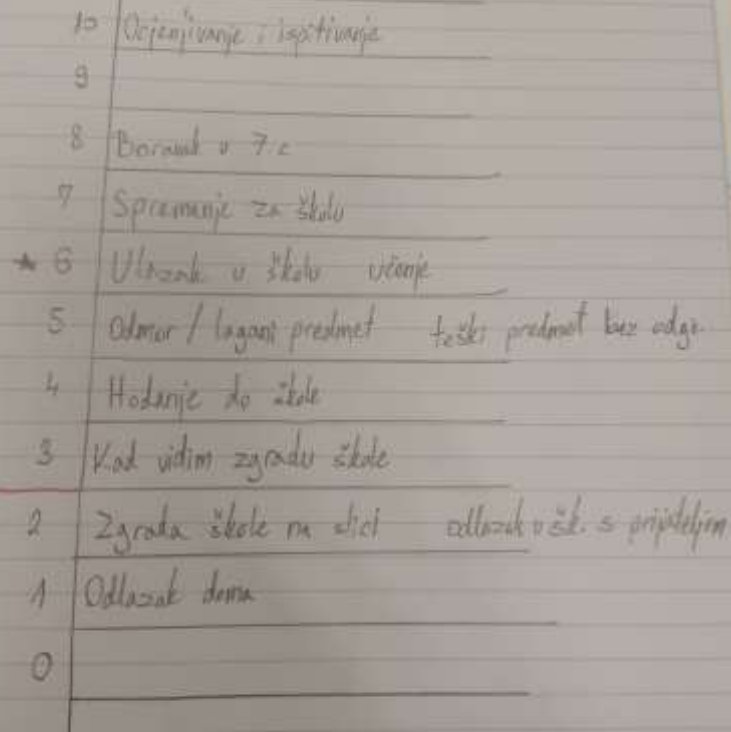 10 Ocjenjivanje i ispitivanje
9
8 Boravak u 7.c
7 Spremanje za školu
* 6 Ulazak u školu učenje
5 Odmor / lagani predmet teški predmet bez odgo.
4 Hodanje do škole
3 Kad vidim zgradu škole
2 Zgrada škole na slici odlazak u šk. s prijateljem
1 Odlazak doma
0